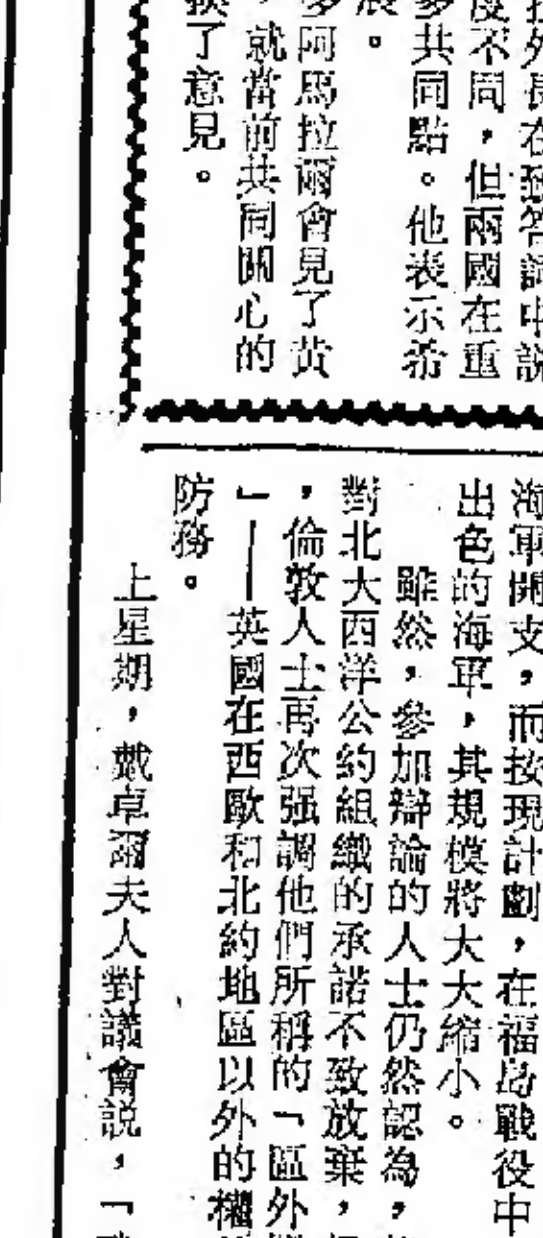 拉外長在致答詞中説
度不同，但兩國在重
多共同點。他表示希
展。
多阿馬拉爾會見了黄
，就當前共同關心的
換了意見。
海軍開支，而按現計劃，在福島戰役中
出色的海軍，其規模將大大縮小。
雖然，參加辯論的人士仍然認為，
對北大西洋公約組織的承諾不致放棄，
，倫敦人士再次强調他們所稱的「區外
」——英國在西歐和北約地區以外的權
防務。
上星期，戴卓爾夫人對議會説，「